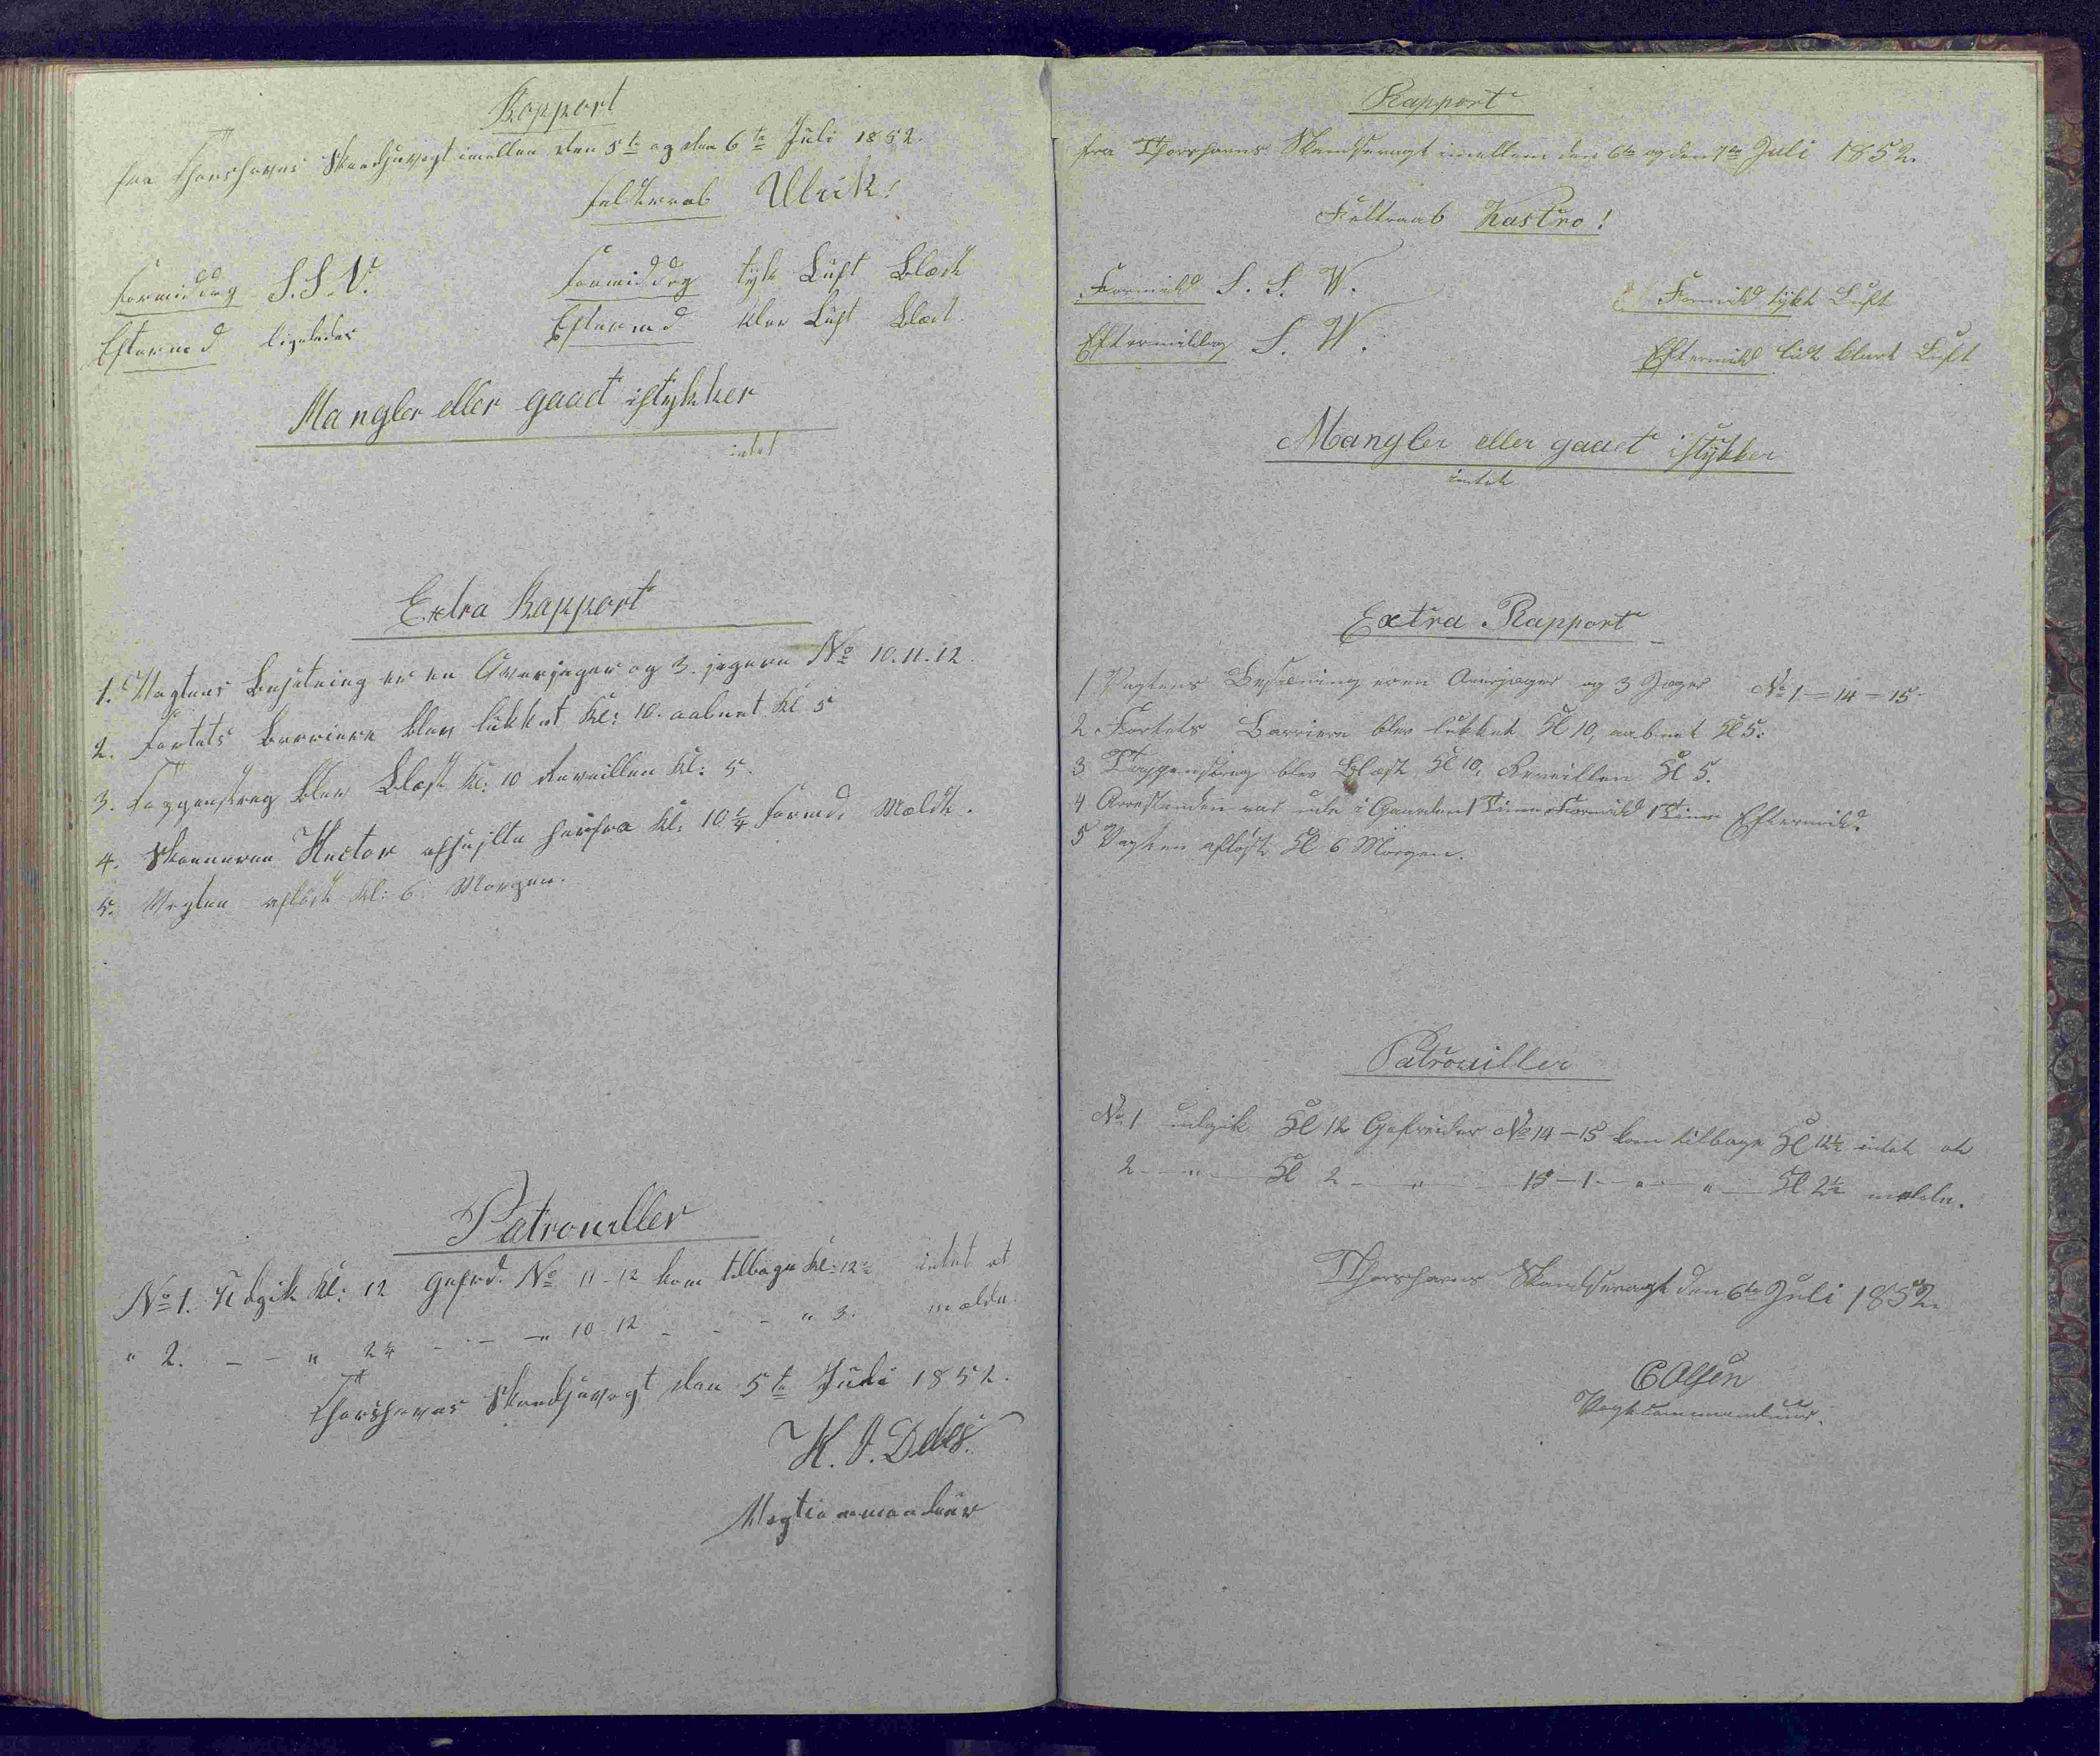 Rapport
fra Thorshavns Skandsevagt imellem den 5te og den 6te Juli 1852.
Feltraab Ulrik!
Formiddag S. S. V. Formiddag tyk Luft Blæst
Eftermd ligeledes Eftermd klar Luft Blæst
Mangler eller gaaet istykker
intet
Extra Rapport
1. Vagtens Besætning er en Overjæger og 3 jægere No 10. 11. 12.
2. Fortets Barriere blev lukket Kl: 10. aabnet Kl 5
3. Tappenstreg blev Blæst Kl: 10 Reveillen Kl: 5.
4. Skonneren Hector afsejlte herfra Kl: 10 1/4 Formd. Mældt.
5. Vagten afløst Kl: 6. Morgen.
Patrouiller
No 1. Udgik Kl: 12 Gefrd. No 11-12 kom tilbage Kl: 12 1/2 intet at
" 2. — — " 2 1/4 — — — " 10-12 — — — " 3. mælde.
Thorshavns Skandsevagt den 5te Juli 1852.
H. J. Debes.
Vagtcommandeur
Rapport
fra Thorshavns Skandsevagt imellem den 6te og den 7de Juli 1852.
Feltraab Kastro!
Formidd S. S. W. Formidd tykt Luft
Eftermiddag S. W. Eftermidd lidt klart Luft
Mangler eller gaaet istykker
intet
Extra Rapport
1 Vagtens Besætning er en Overjæger og 3 Jæger No 1 — 14 — 15
2 Fortets Barriere blev lukket Kl 10, aabnet Kl 5.
3 Tappenstreg blev Blæst Kl 10, Reveillen Kl 5.
4 Arrestanden var ude i Gaarden 1 Time Formidd 1 Time Eftermidd.
5 Vagten afløst Kl 6 Morgen.
Patrouiller
No 1 udgik Kl 12 Gefreider No 14 — 15 kom tilbage Kl 12 1/2 intet at
2 — " — Kl 2 — " — 15 — 1 — " — " — Kl 2 1/2 melde.
Thorshavns Skandsevagt den 6te Juli 1852.
C Olsen
Vagtcommandeur.